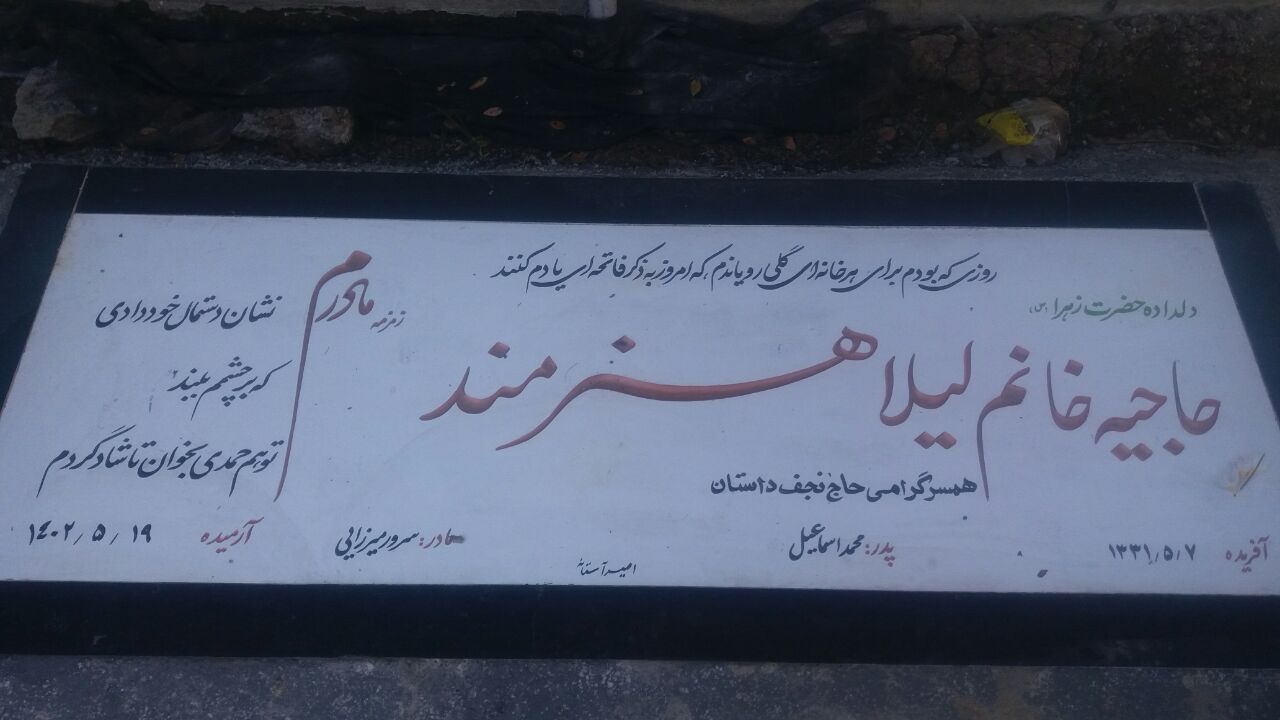 روزی که بودم برای هر خانه ای گلی رویاندم، که امروز به ذکر فاتحه ای یادم کنند
دلداده حضرت زهرا (س)
حاجیه خانم لیلا هنرمند
همسر گرامی حاج نجف داستان
زمزمه مادرم
نشان دستمال خود دادی
که بر چشمم ببند
تو هم حمدی بخوان تا شاد گردم
آفریده ۱۳۳۱٫۵٫۷
پدر: محمد اسماعیل
مادر: سرور میرزایی
آرمیده ۱۴۰۲٫۵٫۱۹
امیر آستانه